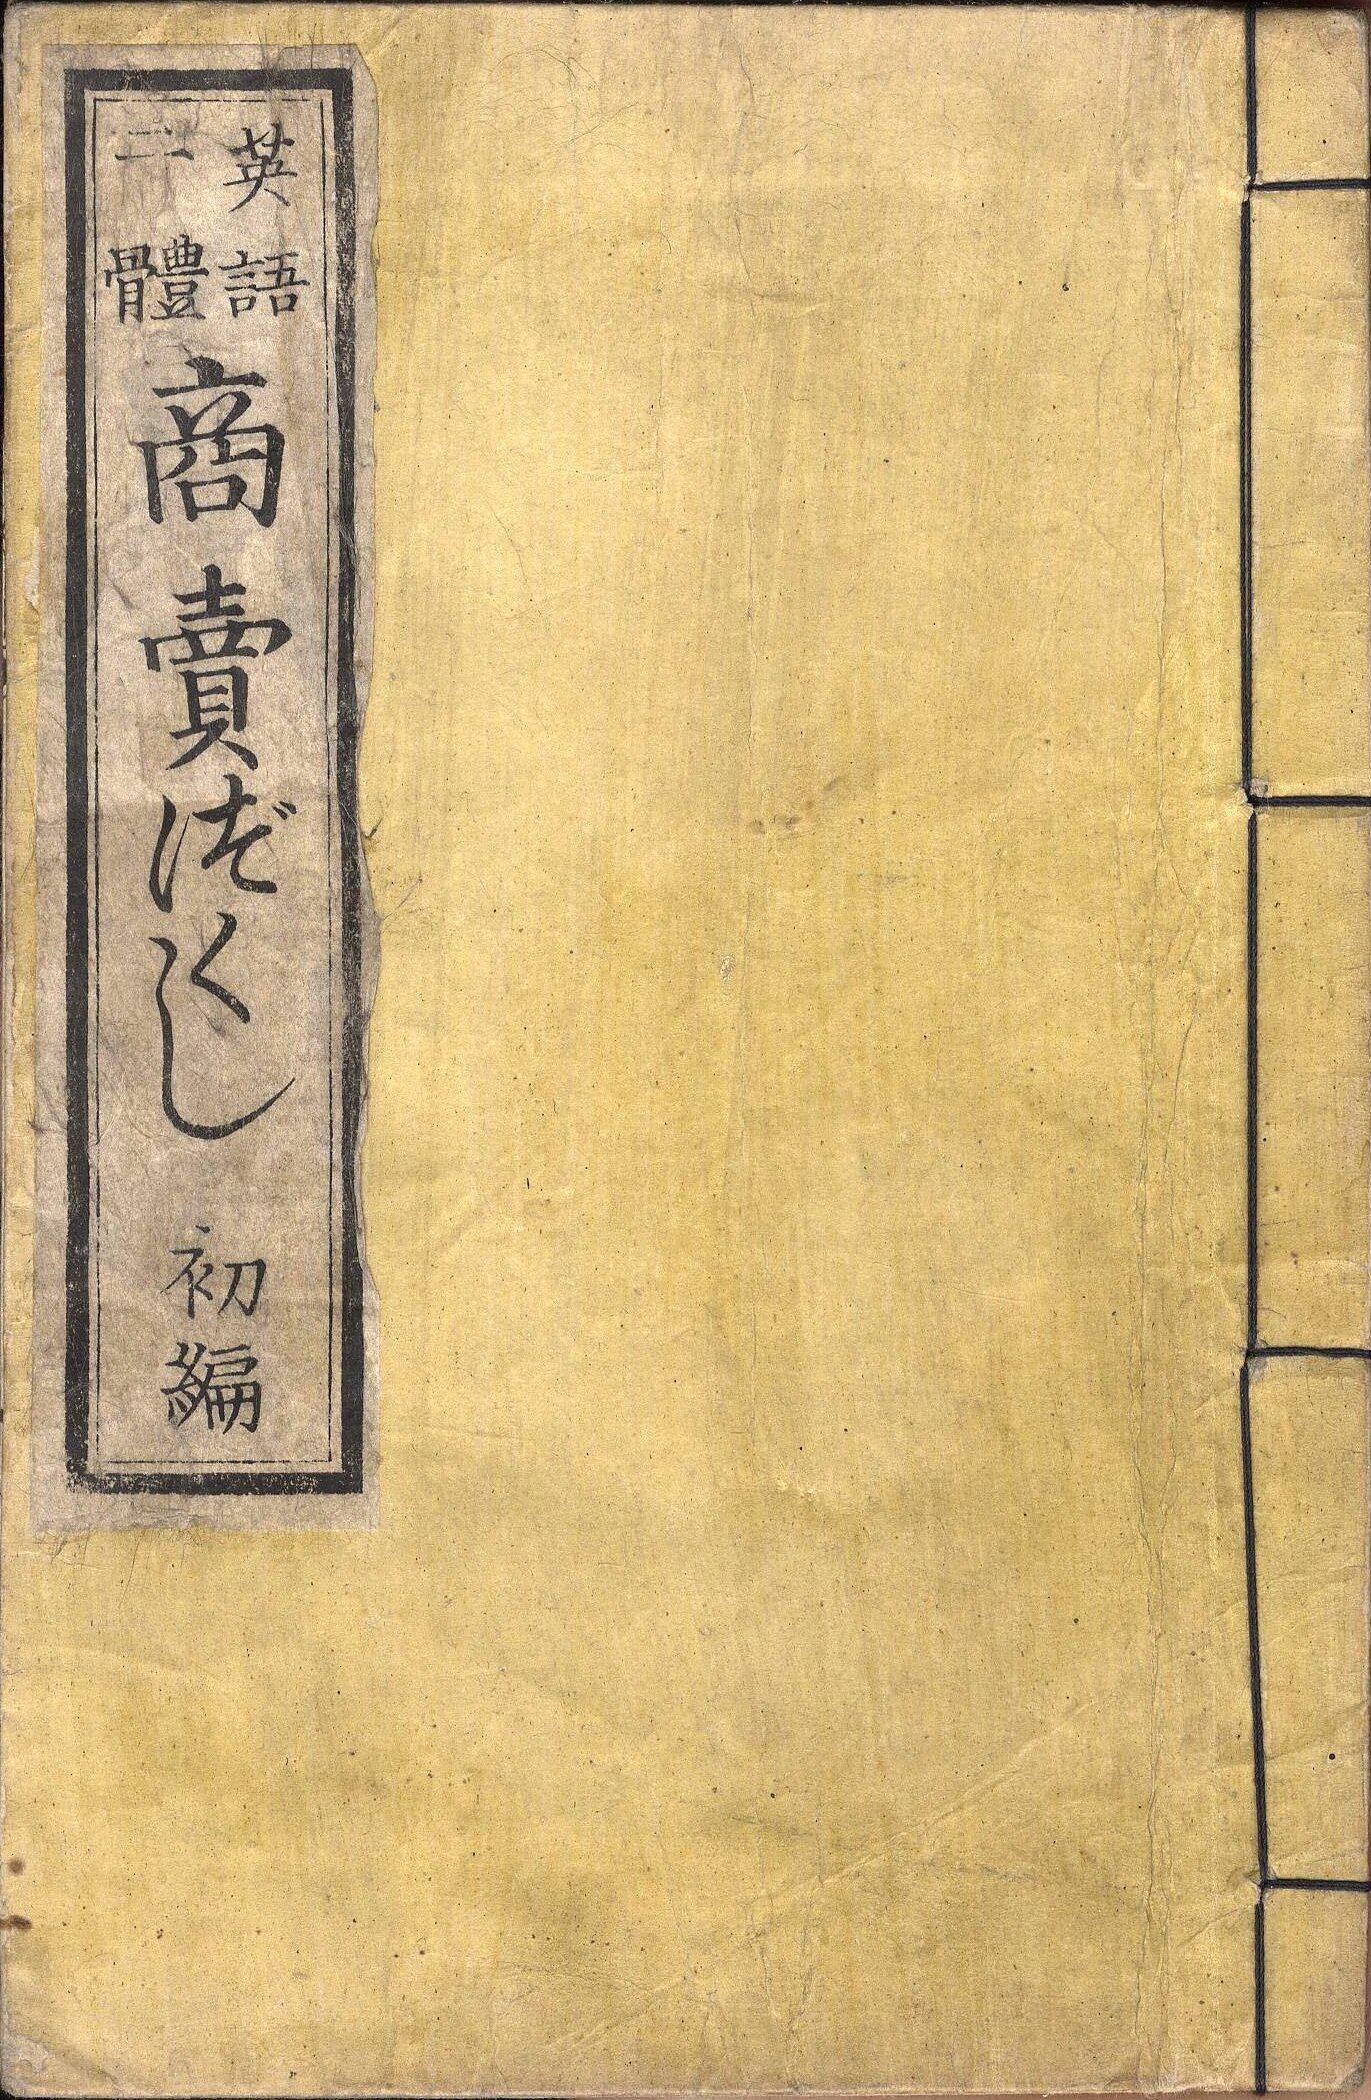 英語
二體
商賣づくし
初編